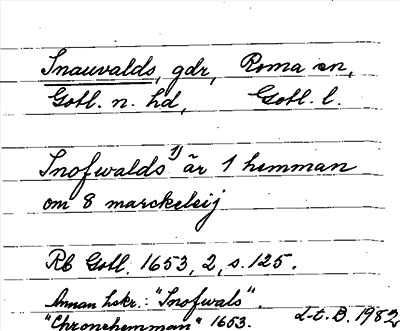 Snauvalds, gdr, Roma sn,
Gotl. n. hd, Gotl. l.
Snofwalds 1) är 1 hemman
om 8 marckeleij
Rb Gotl. 1653, 2, s. 125.
Annan hskr.: "Snofwals".
"Chronohemman" 1653. L-t. B. 1982